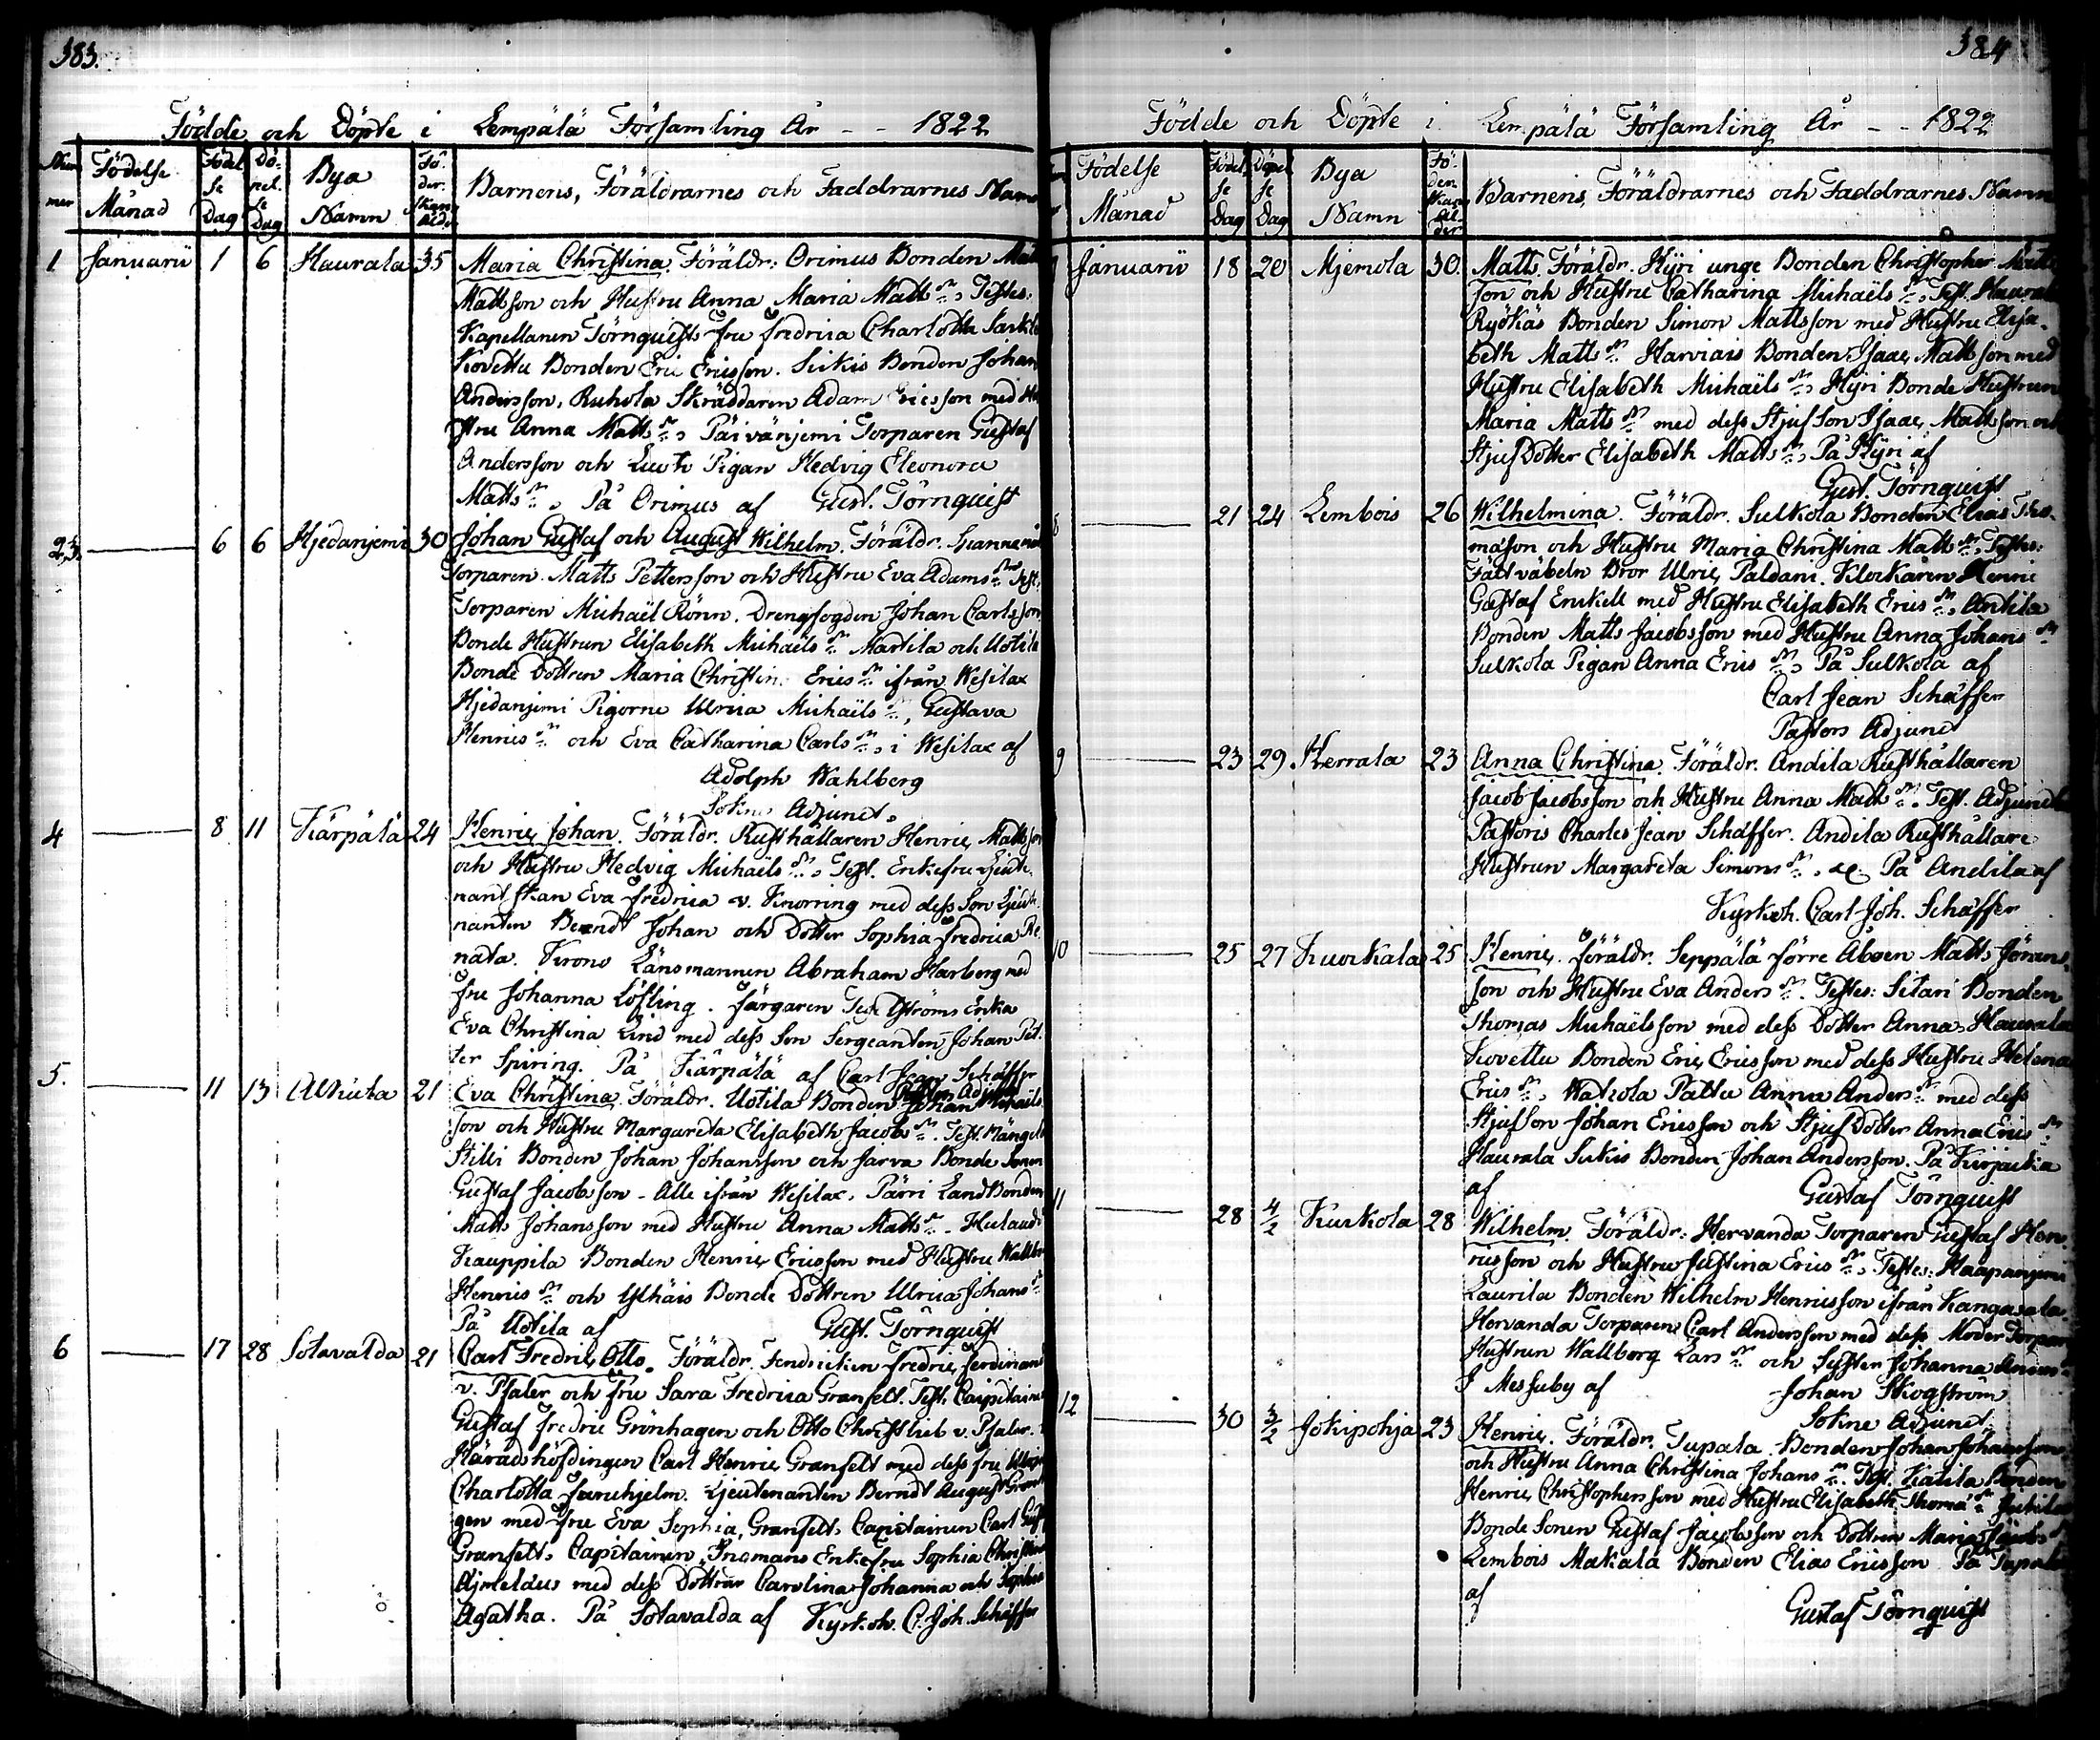 383.
Födde och Döpte i Lempälä Församling År - - 1822
Num mer Födelse Månad Födel se Dag Dö- pel. se Dag Bya Namn Fö- der- skans Ålder Barnens, Föräldrarnes och Faddrarnes Namn
1 Januarii 1 6 Haurala 35 Maria Christina. Föräldr: Orimus Bonden Matts
Mattsson och Hustru Anna Maria Matts dr, Testes:
Kapellanen Törnquists Fru Fredrica Charlotta
Kovettu Bonden Eric Ericsson. Sukis Bonden Johan
Andersson, Ruhola Skräddaren Adam Ericsson med Hu
stru Anna Matts dr, Päivänjemi Torparen Gustaf
Andersson och Pigan Hedvig Eleonora
Matts dr, På Orimus af Gust. Törnquist
2,3 — 6 6 Hjedanjemi 30 Johan Gustaf och August Wilhelm. Föräldr.
Torparen Matts Pettersson och Hustru Eva Adams dr Test.
Torparen Michaël Rönn. Drengfogden Johan Carlsson
Bonde Hustrun Elisabeth Michaëls dr Martila och Uotila
Bonde Dottren Maria Christin Erics dr ifrån Wesilax
Hjedanjemi Pigorne Ulrica Michaëls dr, Gustava
Henrics dr och Eva Catharina Carls dr, i Wesilax af
Adolph Wahlberg
Sokne Adjunct.
4 — 8 11 Kärpälä 24 Henric Johan. Föräldr. Rusthållaren Henric Mattsson
och Hustru Hedvig Michaëls dr, Test. Enkefru Lieute-
nantskan Eva Fredrica v. Knorring med dess Son Lieute-
nanten Berndt Johan och Dotter Sophia Fredrica Re-
nata. Krono Länsmannen Abraham Harberg med
Fru Johanna Löfling. Färgaren Enka
Eva Christina Lind med dess Son Sergeanten Johan Pet-
ter Spúring. På Kärpälä af Carl Jean Schäffer
Pastors Adjunct
5. — 11 13 Alkuta 21 Eva Christina. Föräldr. Uotila Bonden Johan Michaëls
son och Hustru Margareta Elisabeth Jacobs dr. Test.
Hilli Bonden Johan Johansson och Jarva Bonde Sonen
Gustaf Jacobsson - Alle ifrån Wesilax. Pärri Landbonden
Matts Johansson med Hustru Anna Matts dr.
Kauppila Bonden Henric Ericsson med Hustru Wallbor
Henrics dr och Ylhäis Bonde Dottren Ulrica Johans dr
På Uotila af Gust. Törnquist
6 — 17 28 Sotavalda 21 Carl Fredric Otto. Föräldr. Fendricken Fredric Ferdinand
v. Pfaler och Fru Sara Fredrica Granfelt. Test. Capitaine
Gustaf Fredric Grönhagen och Otto Christlieb v. Pfaler.
Häradshöfdingen Carl Henric Granfelt med dess Fru
Charlotta Furuhjelm. Lieutenanten Berndt August Grönha
gen med Fru Eva Sophia Granfelt. Capitainen Carl Gust
Granfelt. Capitainen Enkefru Sophia Christina
Ajmelæus med dess Döttrar Carolina Johanna och Sophia
Agatha. På Sotavalda af Kyrkoh. C. Joh. Schäffer
384
Födde och Döpte i Lempälä Församling År - - 1822
Födelse Månad Födel se Dag Döpel se Dag Bya Namn Fö- der skans Ål- der Barnens, Föräldrarnes och Faddrarnes Namn
Januarii 18 20 Mjemola 30. Matts. Föräldr. Hyri unge Bonden Christopher Matts
son och Hustru Catharina Michaëls dr, Test. Haurala
Ryökäs Bonden Simon Mattsson med Hustru Elisa-
beth Matts dr Harviais Bonden Isaac Mattsson med
Hustru Elisabeth Michaëls dr, Hyri Bonde Hustrun
Maria Matts dr med dess Stjuf Son Isaac Mattsson och
Stjuf Dotter Elisabeth Matts dr, På Hyri af
Gust. Törnquist
8 — 21 24 Lembois 26 Wilhelmina. Föräldr. Sulkola Bonden Elias Tho-
masson och Hustru Maria Christina Matts dr, Testes:
Fältväbeln Bror Ulric Paldani. Klockaren Henric
Gustaf Enckell med Hustru Elisabeth Erics dr, Antila
Bonden Matts Jacobsson med Hustru Anna Johans dr
Sulkola Pigan Anna Erics dr, På Sulkola af
Carl Jean Schäffer
Pastors Adjunct
9 — 23 29 Herrala 23 Anna Christina. Föräldr. Andila Rusthållaren
Jacob Jacobsson och Hustru Anna Matts dr. Test. Adjuncte
Pastoris Charles Jean Schäffer. Andila Rusthållare
Hustrun Margareta Simons dr, &c. På Andila af
Kyrkoh. Carl Joh. Schäffer
10 — 25 27 Kuokala 25 Henric. Föräldr. Seppälä förre Åboen Matts Jörans-
son och Hustru Eva Anders dr. Testes: Sitari Bonden
Thomas Michaëlsson med dess Dotter Anna. Haurala
Kovettu Bonden Eric Ericsson med dess Hustru Helena
Erics dr, Anna Anders dr med dess
Stjufson Johan Ericsson och Stjuf Dotter Anna Erics dr
Haurala Sukis Bonden Johan Andersson. På
af Gustaf Törnquist
11 — 28 4/2 Kurkola 28 Wilhelm. Föräldr: Hervanda Torparen Gustaf Hen-
ricsson och Hustru Justina Erics dr, Testes: Haapanjemi
Laurila Bonden Wilhelm Henricsson ifrån Kangasala.
Hervanda Torparen Carl Andersson med dess Moder Torpare
Hustrun Wallborg Lars dr och Syster Johanna Anders
I Messuby af Johan Skogström
Sokne Adjunct.
12 — 30 3/2 Jokipohja 23 Henric. Föräldr. Tupala Bonden Johan Johansson
och Hustru Anna Christina Johans dr. Test. Katila Bonden
Henric Christophersson med Hustru Elisabeth Thomæ dr
Bonde Sonen Gustaf Jacobsson och Dottren Maria Jacobs dr
Lembois Makala Bonden Elias Ericsson På Tupala
af
Gustaf Törnquist